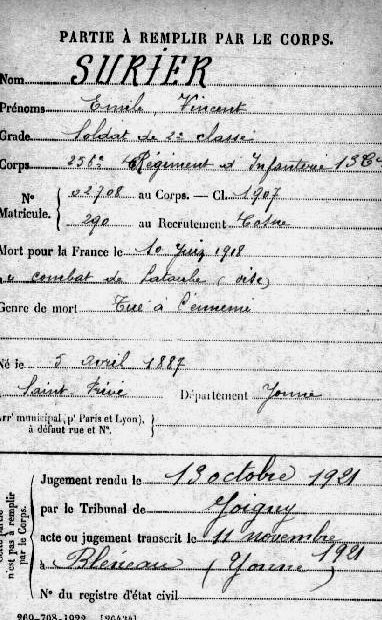 PARTIE À REMPLIR PAR LE CORPS.
Nom SURIER
Prénoms Emile, Vincent
Grade Soldat de 2e classe
Corps 256e Régiment d'Infanterie 13 Cie
Nº 02708 au Corps. — Cl. 1907
Matricule. 290 au Recrutement Cosne
Mort pour la France le 10 Juin 1918
combat de Lataule (oise)
Genre de mort Tué à l'ennemi
Né le 5 avril 1887
Saint Privé Département Yonne
Arrt municipal (pr Paris et Lyon),
à défaut rue et Nº.
Cette partie n'est pas à remplir par le Corps.
Jugement rendu le 13 octobre 1921
par le Tribunal de Joigny
acte ou jugement transcrit le 11 novembre 1921
à Bléneau (Yonne)
Nº du registre d'état civil
269-708-1922. [26434]